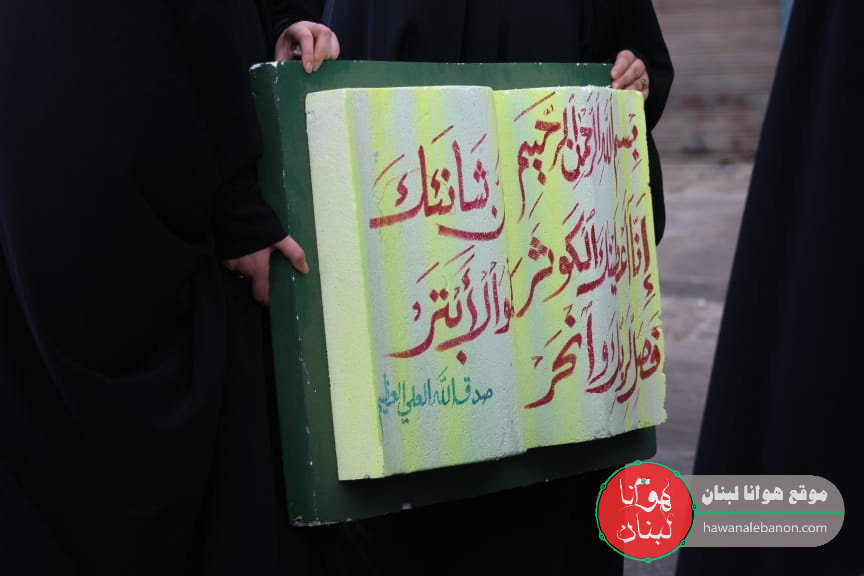 بِسمِ اللهِ الرَّحمٰنِ الرَّحِيمِ
إِنَّا أَعطَينٰكَ الكَوثَر
فَصَلِّ لِرَبِّكَ وَانحَر
شَانِئَكَ
هُوَ الأَبتَر
صدق الله العلي العظيم
موقع هوانا لبنان
hawanalebanon.com
هوانا
لبنان